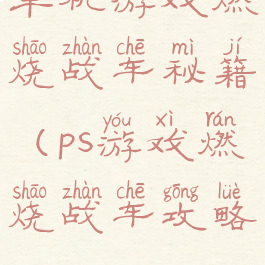 单机游戏燃
shāo zhàn chē mì jí
烧战车秘籍
yóu xì rán
(ps游戏燃
shāo zhàn chē gōng lüè
烧战车攻略